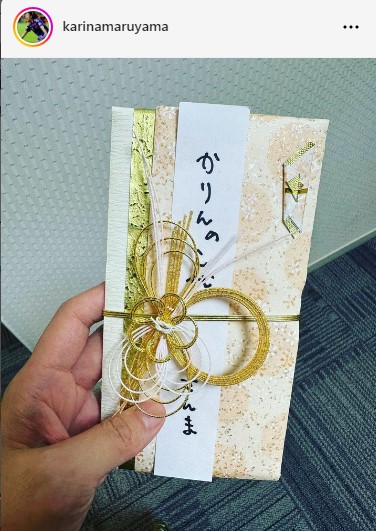 karinamaruyama
かりんの